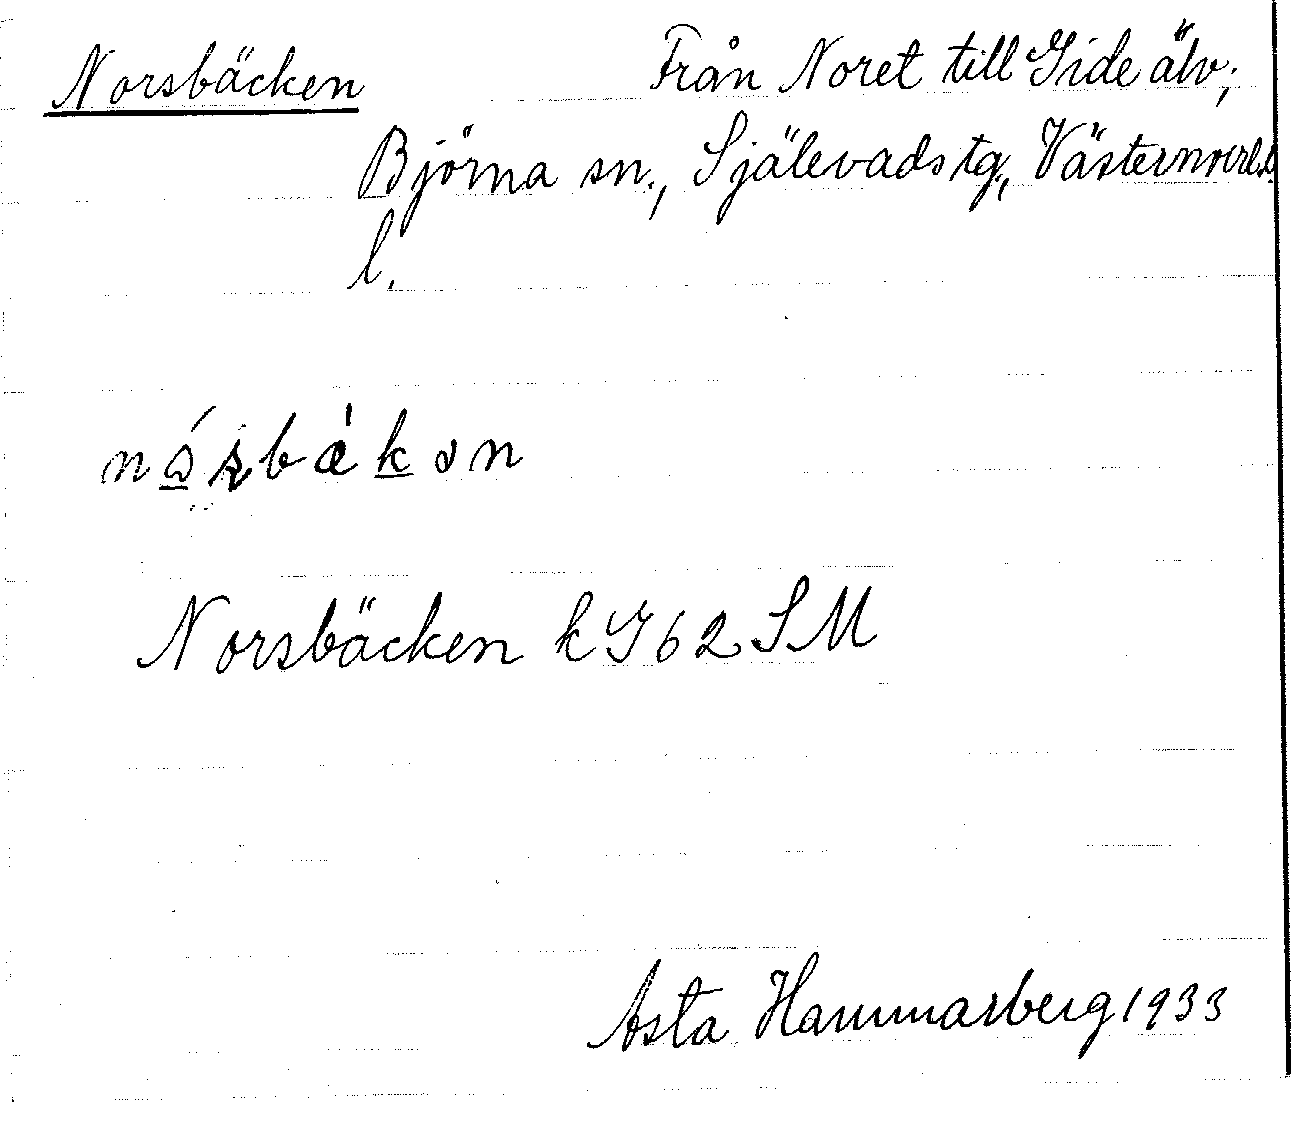 Norsbäcken Från Noret till Gide älv;
Björna sn., Själevads tg, Västernorrl.s
l.
Norsbäcken k J62 SM
Asta Hammarberg 1933